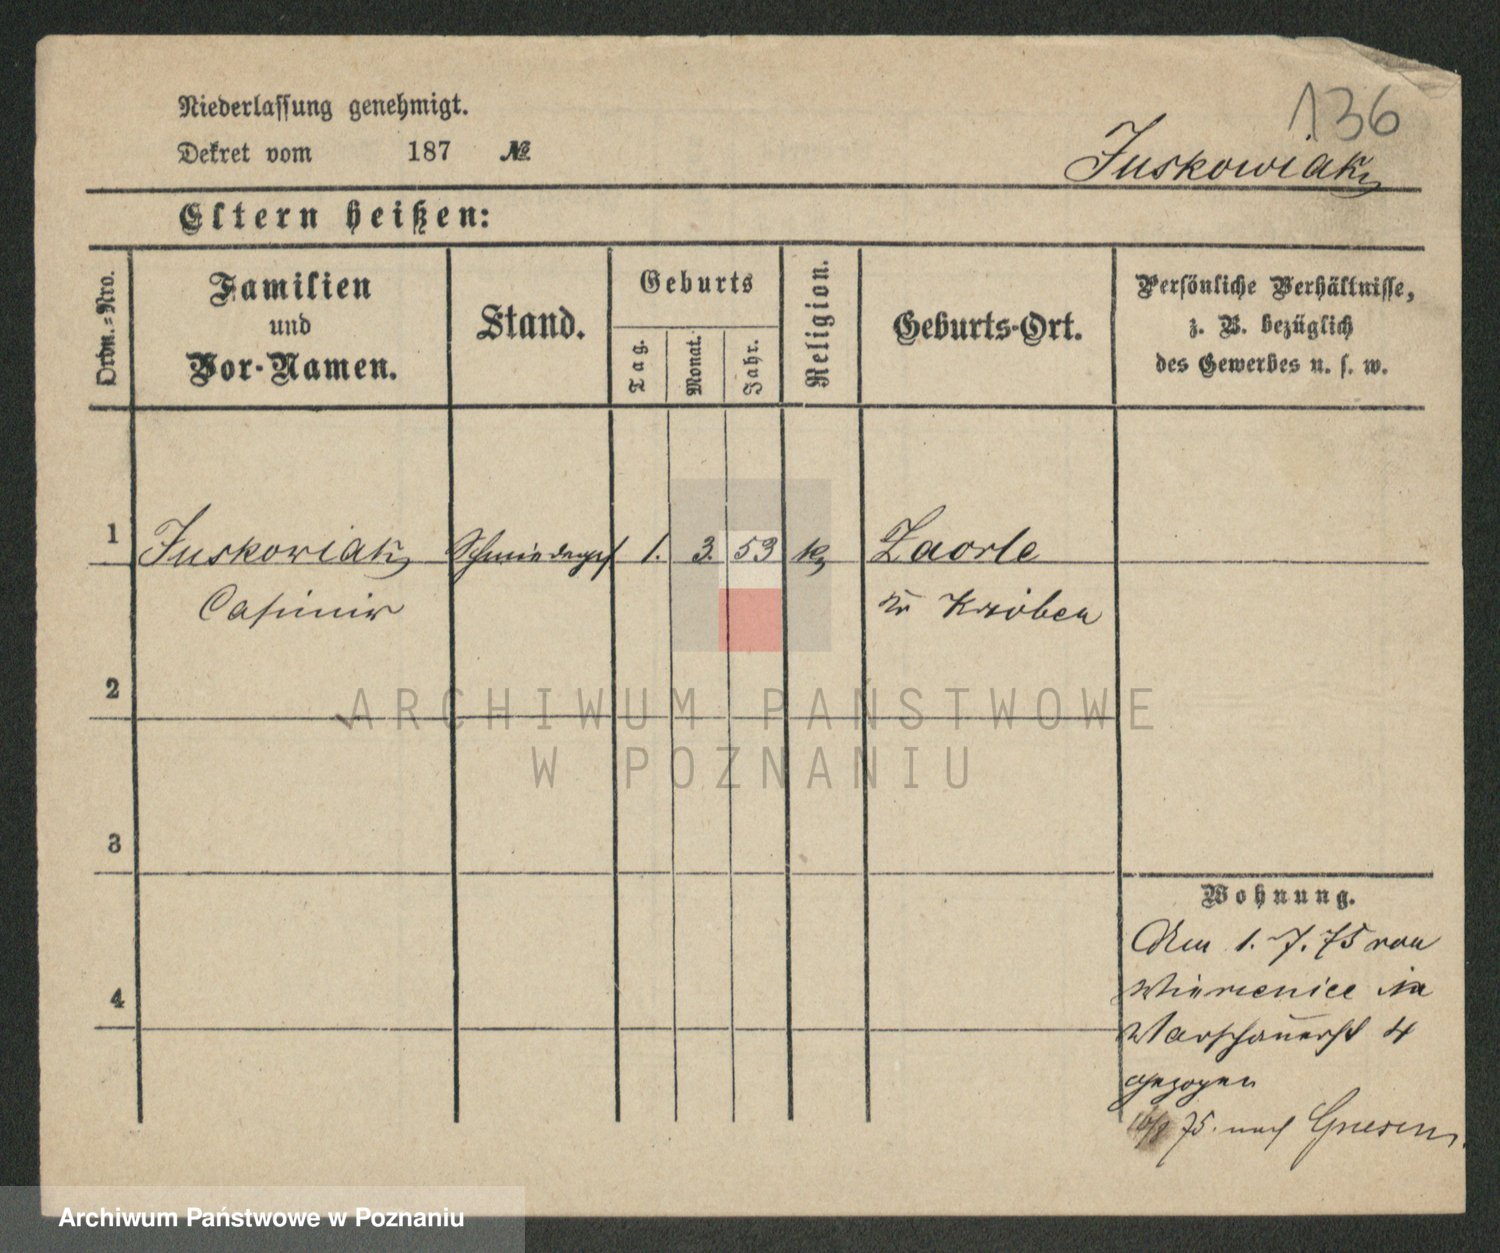 136
Niederlassung genehmigt.
Dekret vom 187 №
Juskowiak
Eltern heißen:
Ordn.-Nro.
Familien und Vor-Namen.
Stand.
Geburts
Tag.
Monat.
Jahr.
Religion.
Geburts-Ort.
Persönliche Verhältnisse,
z. B. bezüglich
des Gewerbes u. s. w.
1 Juskowiak Schmiedegs 1. 3. 53 k Zaorle
Casimir Kr Kröben
2
ARCHIWUM PAŃSTWOWE
W POZNANIU
3
Wohnung.
Am 1. 7. 75 von
Wierzenice in
4
Warschauerst 4
gezogen
75. nach Gnesen
Archiwum Państwowe w Poznaniu